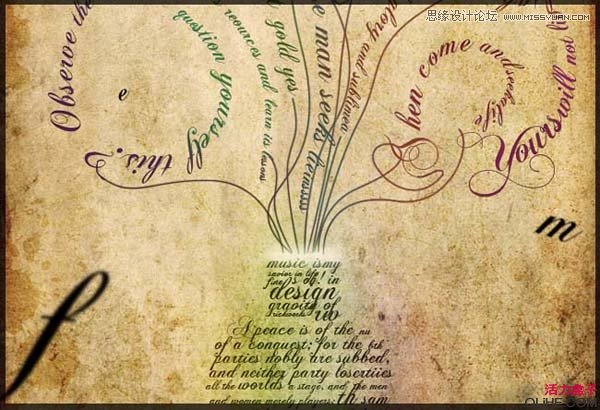 思缘设计论坛 WWW.MISSYUAN.COM
Observe the
question yourself
this?
resources and learn is lessons
gold yes
man seeks
glory and sublimea
hen come and seekalife
Yourswill not
e
m
f
music ismy
savior in life!
of! in
design
gravity of
A peace is of the nu
of a conquest; for the 6th
parties dobly are subbed,
and neither party losertiies
all the worlds a stage, and the men
and women merely players: th sam
活力盒子
OLiHE.COM